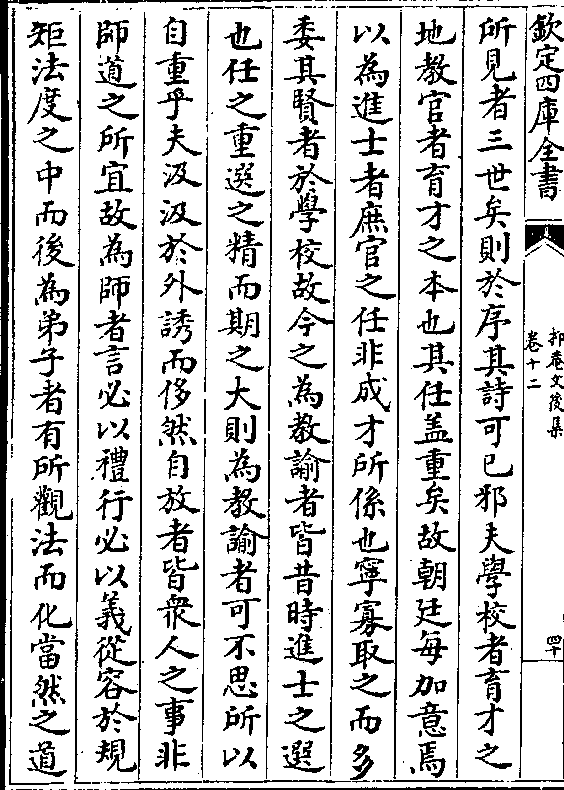 欽定四庫全書
抑菴文後集
卷十二
四十
所見者三世矣則於序其詩可已邪夫學校者育才之
地教官者育才之本也其任盖重矣故朝廷每加意焉
以為進士者庶官之任非成才所係也寧寡取之而多
委其賢者於學校故今之為教諭者皆昔時進士之選
也任之重選之精而期之大則為教諭者可不思所以
自重乎夫汲汲於外誘而侈然自放者皆衆人之事非
師道之所宜故為師者言必以禮行必以義從容於規
矩法度之中而後為弟子者有所觀法而化當然之道